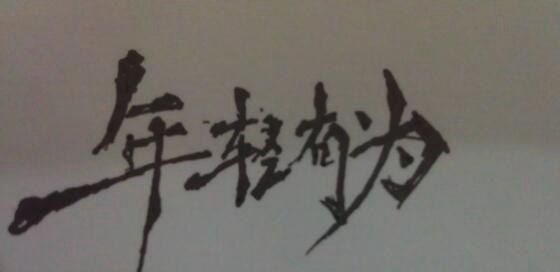 年轻有为